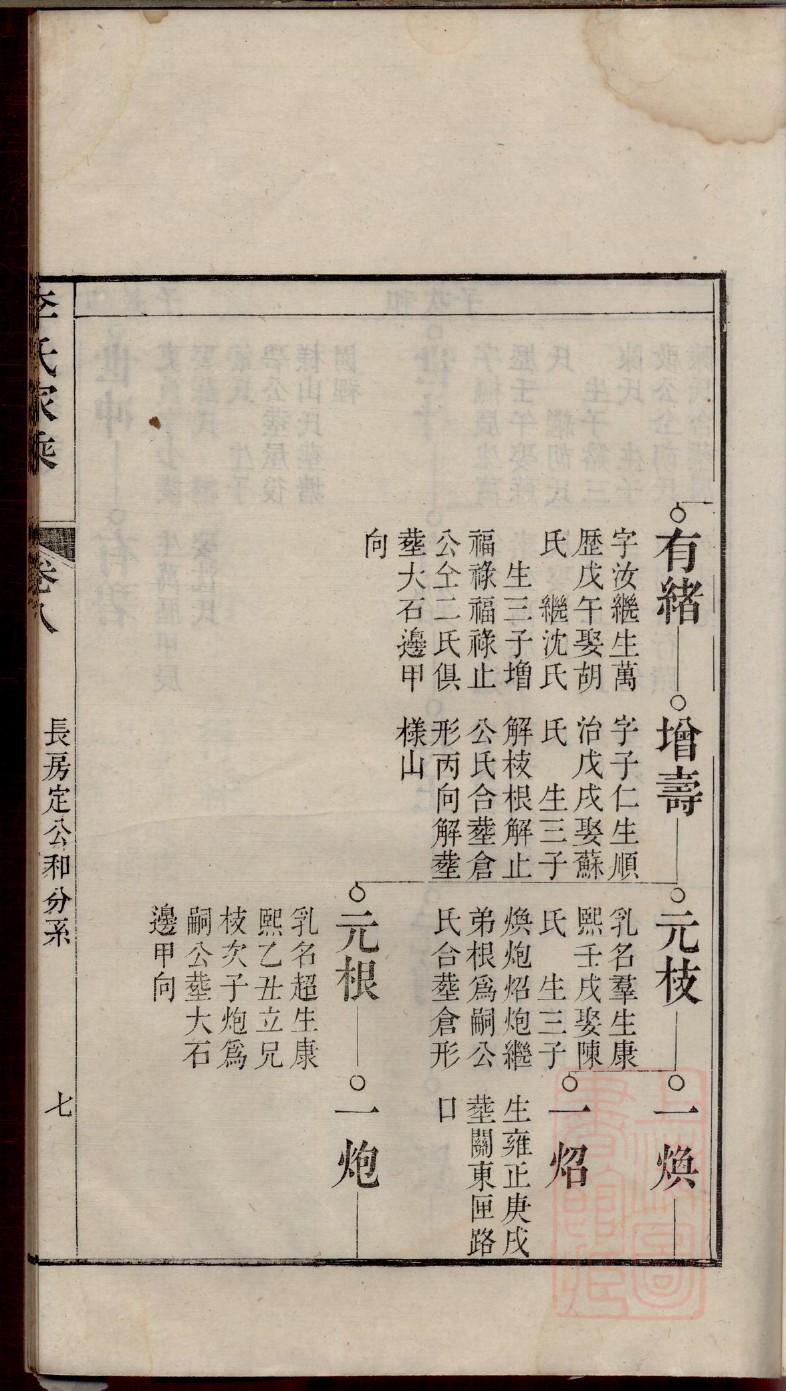 有緒
字汝繼生萬
歷戊午娶胡
氏　繼沈氏
生三子增
福祿福祿止
公仝二氏俱
塟大石邊甲
向
增壽
字子仁生順
治戊戌娶蘇
氏　生三子
解枝根解止
公氏合塟倉
形丙向解塟
樣山
元枝
乳名羣生康
熙壬戌娶陳
氏　生三子
煥炮炤炮繼
弟根爲嗣公
氏合塟倉形
一煥
一炤
生雍正庚戌
塟關東匣路
口
元根
乳名超生康
熙乙丑立兄
枝次子炮爲
嗣公塟大石
邊甲向
一炮
李氏家乘
卷八
長房定公和分系
七